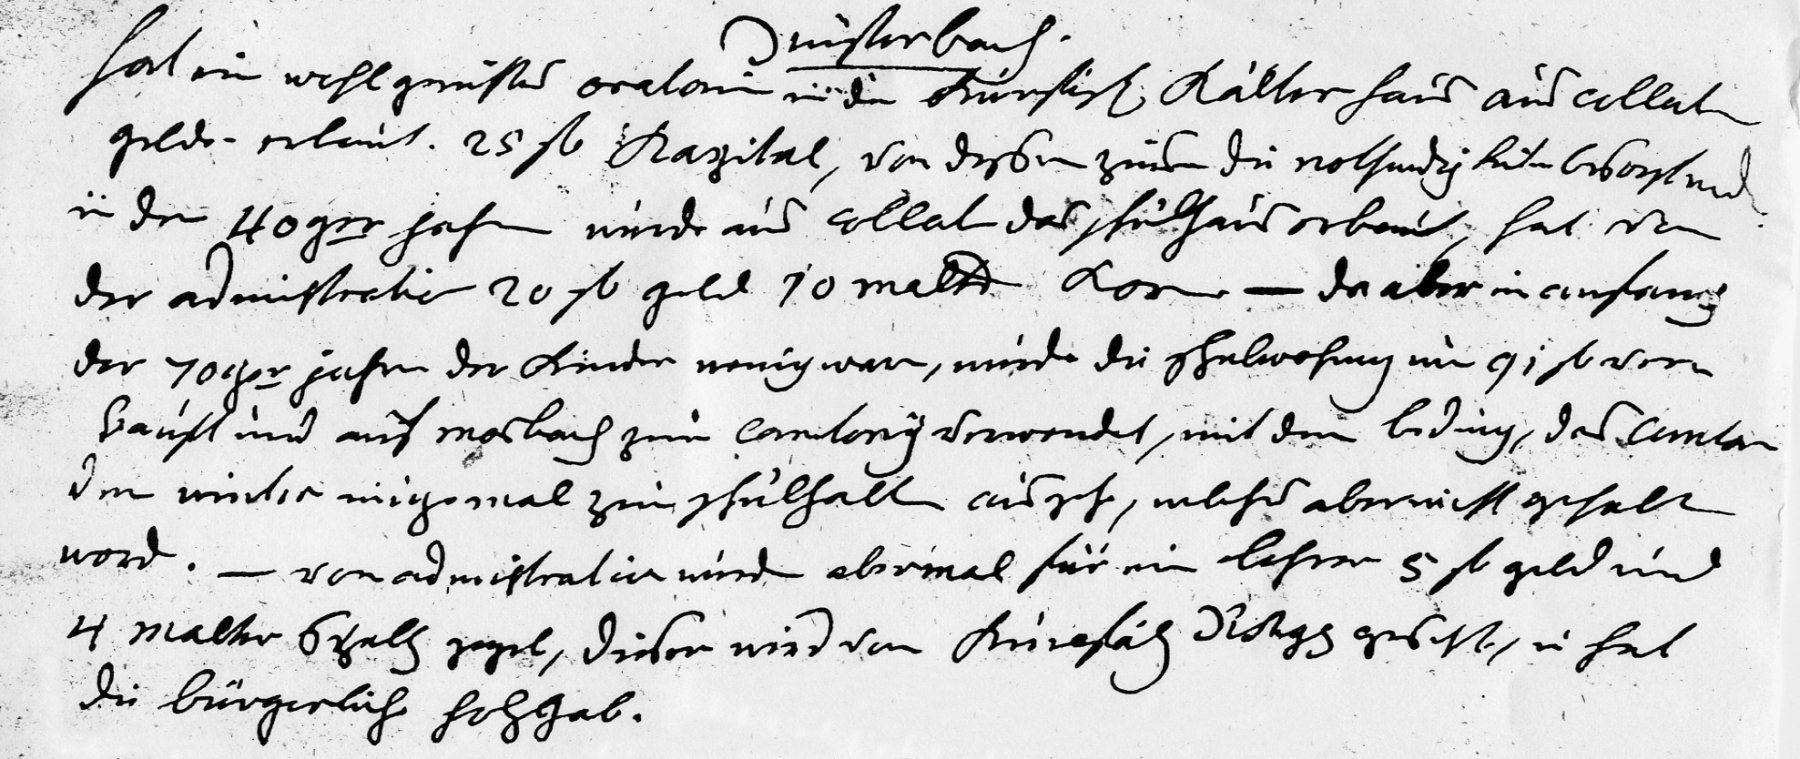 Düsterbach.
hat ein wohl gerüstes oratorium in der Kurpfälz. Kälter haus aus collecten
geldr- erbaut. 25 fl Kapital, von dessen zinsen die nothwendigkeiten besorgt werd.
in den 40ger jahren wurde aus collect das schulhaus erbaut, hat von
der admistration 20 fl geld 10 malter Korn — da aber in anfang
der 70ger jahren der Kinder wenig waren, wurde die schulwohnung um 91 fl ver
kauft und auf mosbach zum cantorey verwendet, mit dem beding, das cantor
den winter einigemal zum schulhalten ausgehe, welches aber nicht gehalten
word. — von admistration wurden abermal für ein lehrer 5 fl geld und
4 malter Spelz gegeb, dieser wird von Kurpfälz gesetzt, u hat
die bürgerliche holzgab.